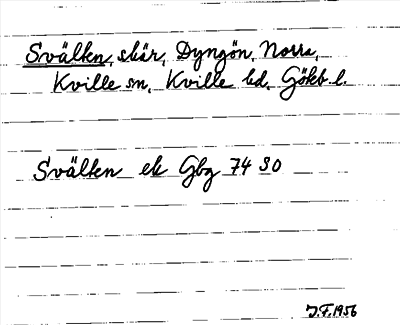 Svälten, skär, Dyngön, Norra,
Kville sn, Kville hd, Gökb. l.
Svälten ek Gbg 74 SO
J.F. 1956